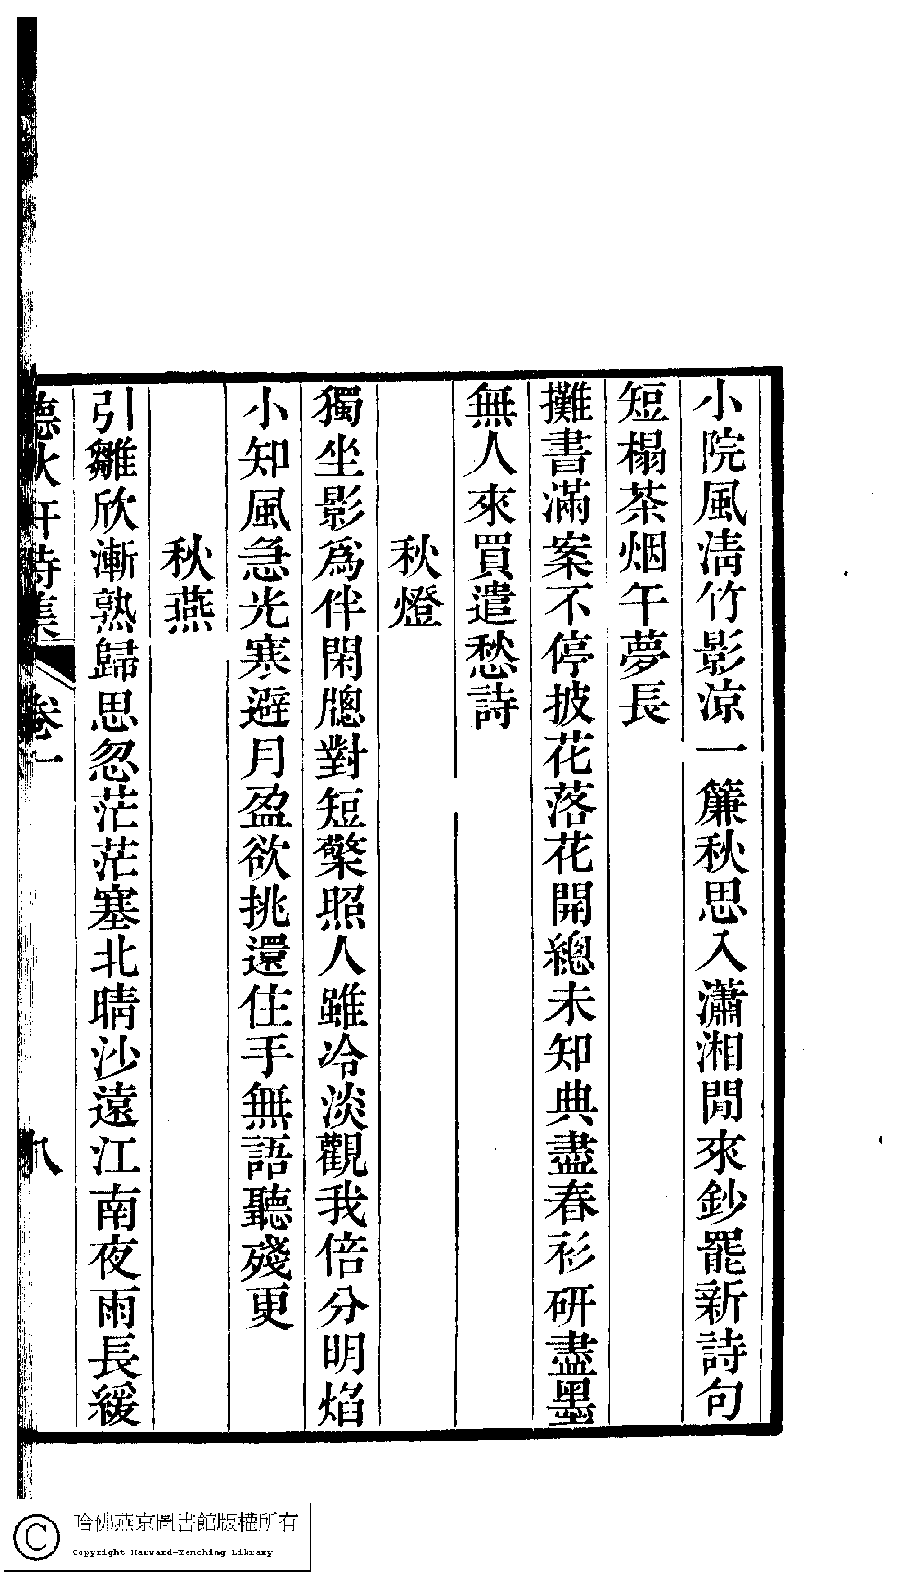 小院風淸竹影涼一簾秋思入瀟湘閒來鈔罷新詩句
短榻茶烟午夢長
攤書滿案不停披花落花開總未知典盡春衫研盡墨
無人來買遣愁詩
秋燈
獨坐影爲伴閑牕對短檠照人雖冷淡觀我倍分明焰
小知風急光寒避月盈欲挑還住手無語聽殘更
秋燕
引雛欣漸熟歸思忽茫茫塞北晴沙遠江南夜雨長緩
德秋軒詩集
卷一
八
哈佛燕京圖書館版權所有
Copyright Harvard-Yenching Library